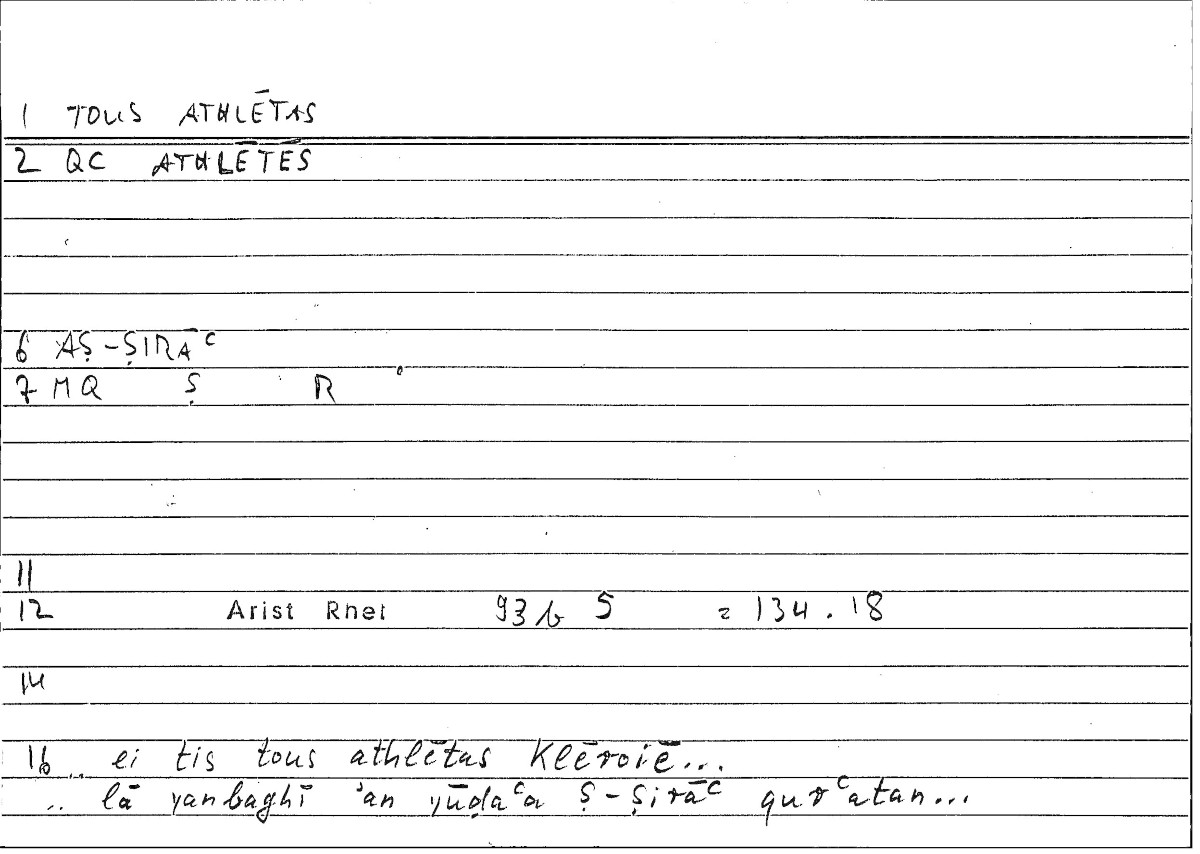 1 TOUS ATHLĒTAS
2 QC ATHLĒTĒS
6 AṢ-ṢIRĀʿ
7 MQ Ṣ R ʿ
11
12 Arist Rhet 93b 5 = 134.18
14
16 .. ei tis tous athlētas klēroiē...
.. lā yanbaghī ʾan yūḍaʿa ṣ-ṣirāʿ qurʿatan...